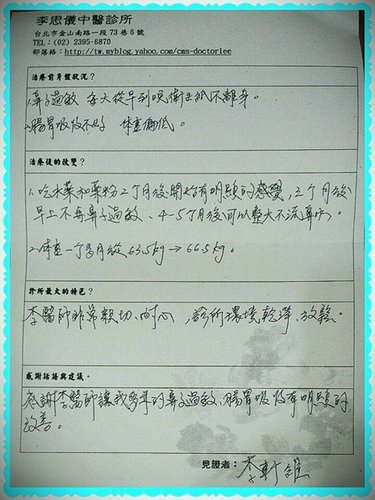 李思儀中醫診所
台北市金山南路一段73巷6號
TEL:(02) 2395-6870
部落格:http://tw.myblog.yahoo.com/cms-doctorlee
治療前身體狀況?
1.鼻子過敏 每天從早到晚衛生紙不離身。
2.腸胃吸收不好 體重偏低。
治療後的改變?
1.吃水藥和藥粉2個月後開始有明顯的感覺,三個月後
早上不再鼻子過敏、4-5個月後可以整天不流鼻水。
2.體重一個多月從63.5kg→66.5kg。
診所最大的特色?
李醫師非常親切、耐心,診所環境乾淨、放鬆。
感謝話語與建議。
感謝李醫師讓我多年的鼻子過敏、腸胃吸收有明顯的
改善。
見證者:李軒維